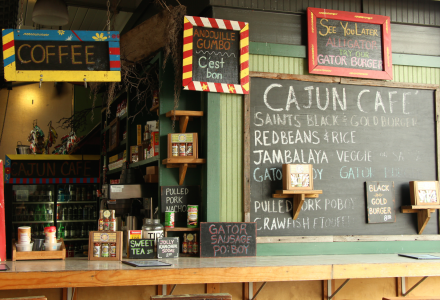 COFFEE
ANDOUILLE
GUMBO
C'est
bon
SEE YOU LATER
ALLIGATOR
GATOR BURGER
CAJUN CAFE
SAINTS BLACK & GOLD BURGER
RED BEANS & RICE
JAMBALAYA VEGGIE
GATOR
PULLED PORK POBOY
CRAWFISH ETOUFFEE
BLACK
AND
GOLD
BURGER
CAJUN CAFE
PULLED
PORK
NACHOS
SWEET
TEA $
JOLLY
GATOR
SAUSAGE
PO BOY